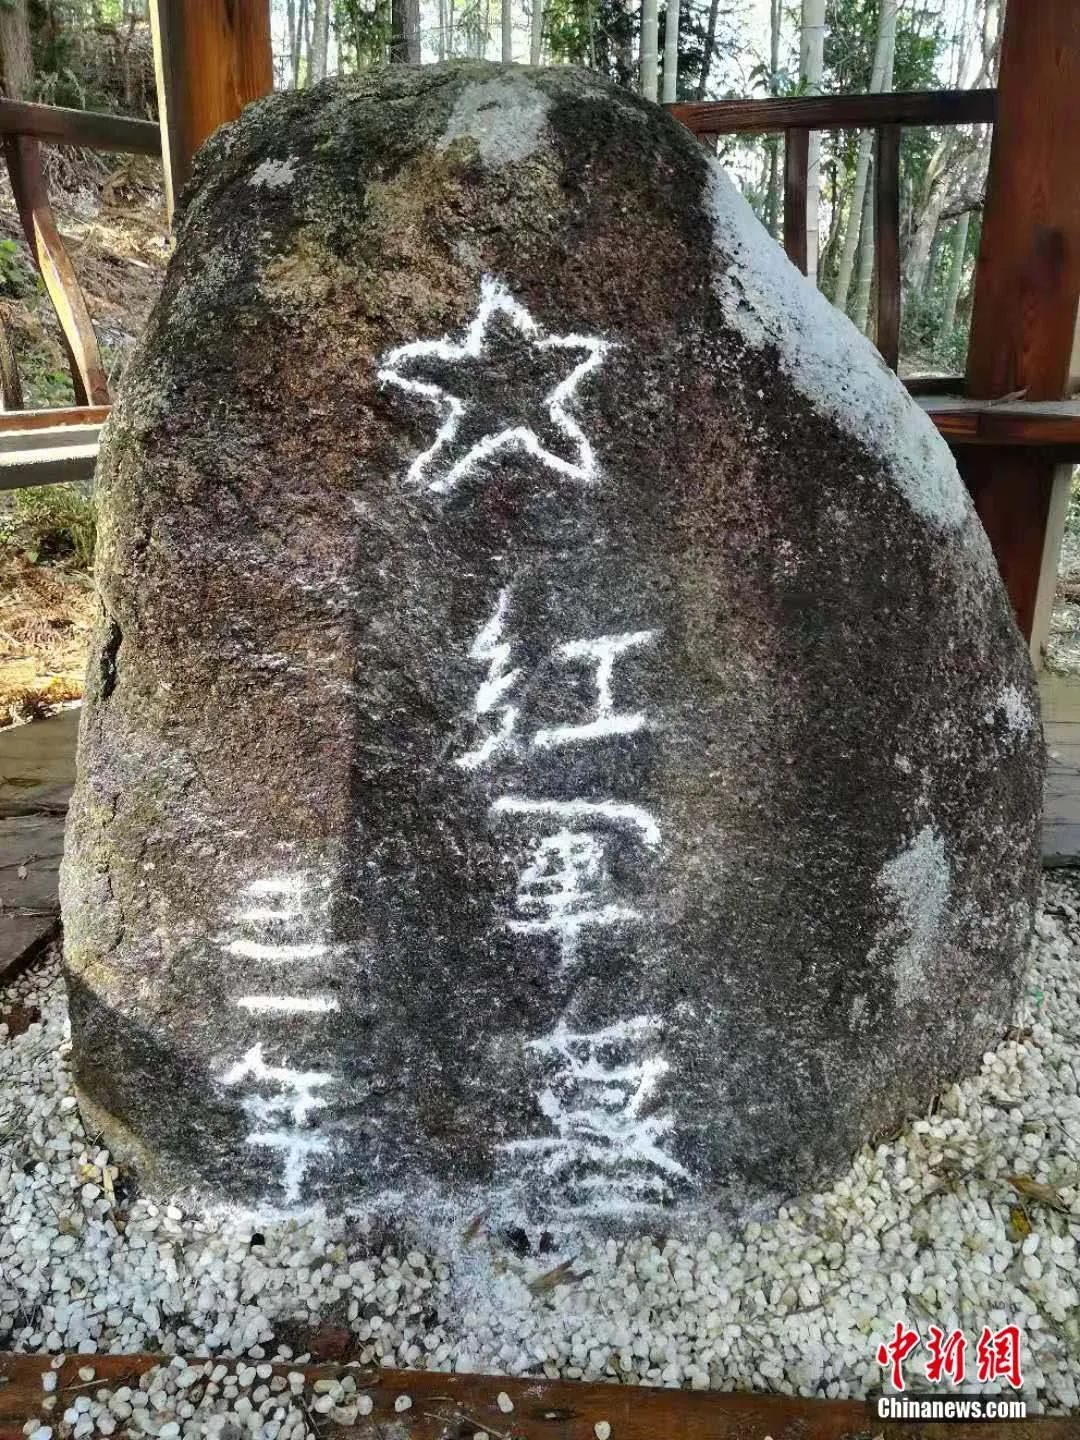 红軍墓
三一年
中新网
Chinanews.com